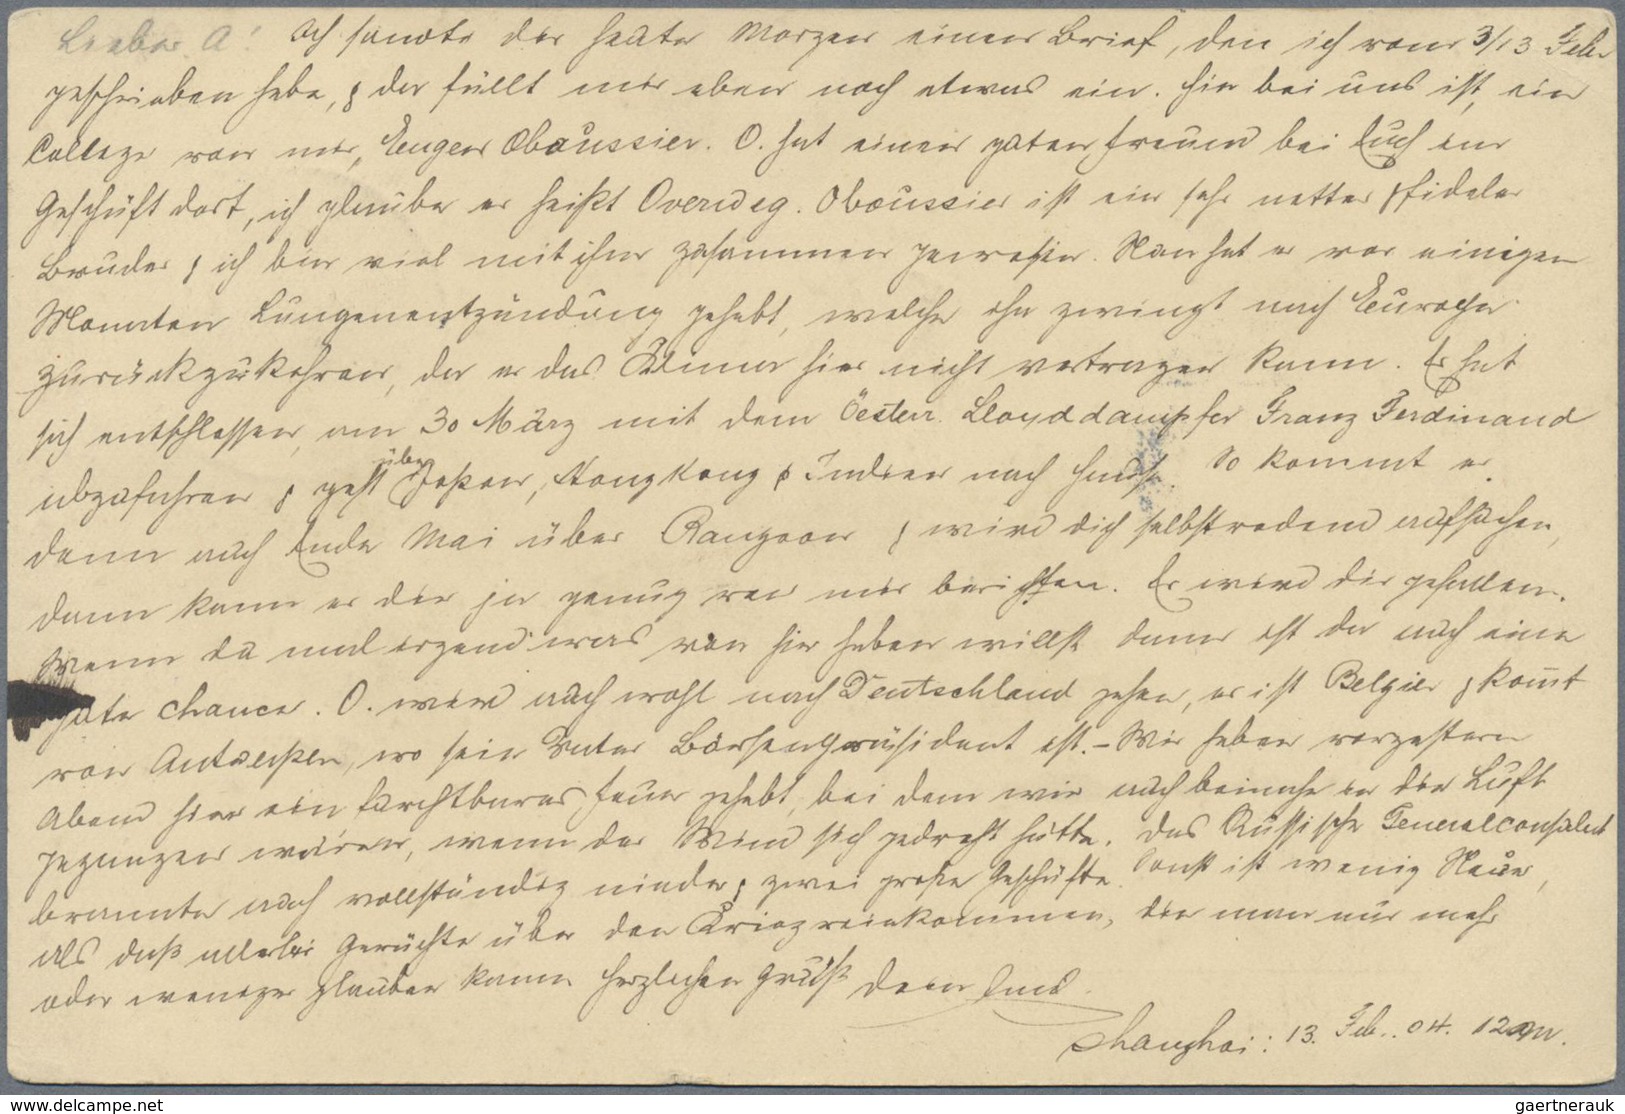 Lieber A! Ich sandte dir heute Morgen einen Brief, den ich vom 3/13 Feb.
geschrieben habe, & da fällt mir eben noch etwas ein. Hier bei uns ist, ein
College von mir, Eugen Oboussier. O. hat einen guten Freund bei Euch im
Geschäft dort, ich glaube er heißt Overweg. Oboussier ist ein sehr netter & fideler
Bruder & ich bin viel mit ihm zusammen gewesen. Nun hat er vor einigen
Monaten Lungenentzündung gehabt, welche ihn zwingt nach Europa
zurückzukehren, da er das Klima hier nicht vertragen kann. Er hat
sich entschlossen, am 30 März mit dem Oesterr. Lloyddampfer Franz Ferdinand
abzufahren & geht über Japan, Hongkong & Indien nach Hause. So kommt er
denn auch Ende Mai über Rangoon & wird dich selbstredend aufsuchen,
dann kann er dir ja genug von mir berichten. Er wird dir gefallen.
Wenn du mal irgend was von hier haben willst dann ist da auch eine
gute Chance. O. wird auch wohl nach Deutschland gehen, er ist Belgier & kom̄t
von Antwerpen, wo sein Vater Börsenpräsident ist. – Wir haben vorgestern
Abend hier ein furchtbares Feuer gehabt, bei dem wir auch beinahe in die Luft
gegangen wären, wenn der Wind sich gedreht hätte. Das Russische Generalconsulat
brannte auch vollständig nieder & zwei große Geschäfte. Sonst ist wenig Neues,
als daß allerlei Gerüchte über den Krieg reinkommen, die man nur mehr
oder weniger glauben kann. Herzlichen Gruß Dein
Shanghai: 13. Feb. 04. 12 am.
www.delcampe.net
gaertnerauk